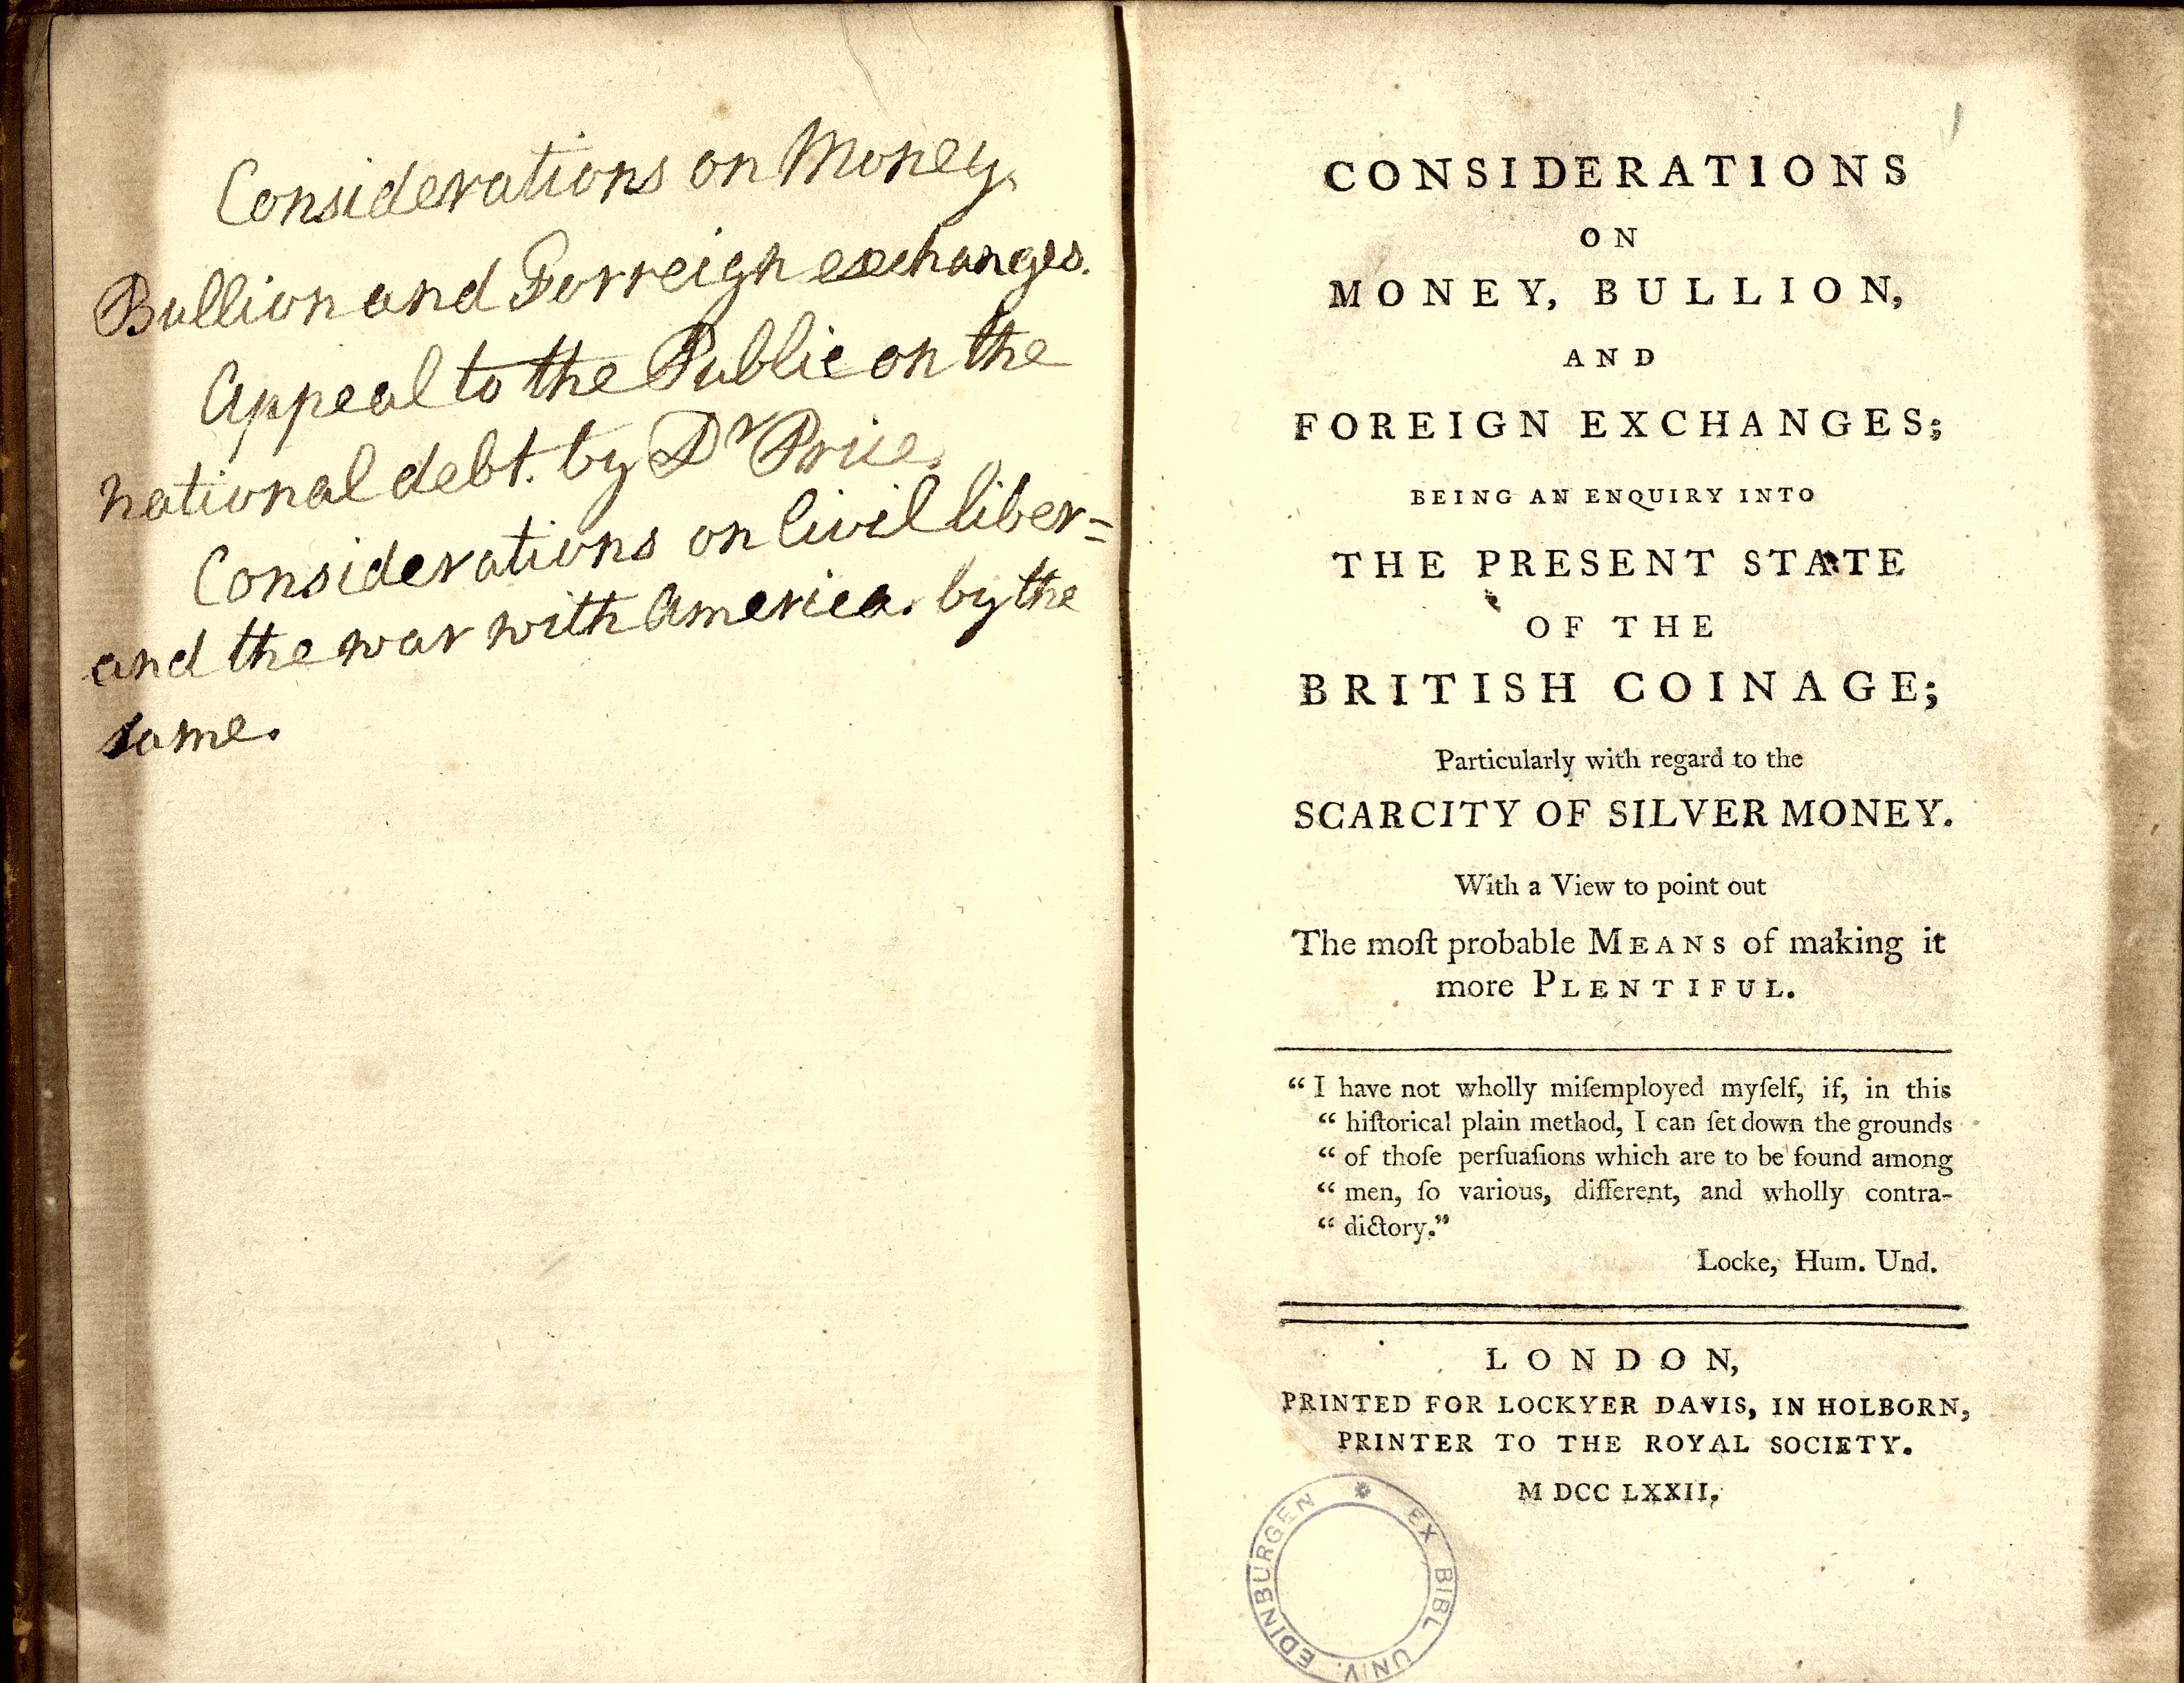 Considerations on Money.
Bullion and Forreign exchanges.
Appeal to the Public on the
national debt. by Dr Price.
Considerations on Civil liber=
and the war with America. by the
same.
CONSIDERATIONS
ON
MONEY, BULLION,
AND
FOREIGN EXCHANGES;
BEING AN ENQUIRY INTO
THE PRESENT STATE
OF THE
BRITISH COINAGE;
Particularly with regard to the
SCARCITY OF SILVER MONEY.
With a View to point out
The moſt probable MEANS of making it
more PLENTIFUL.
“ I have not wholly miſemployed myſelf, if, in this
“ hiſtorical plain method, I can ſet down the grounds
“ of thoſe perſuaſions which are to be found among
“ men, ſo various, different, and wholly contra-
“ dictory.”
Locke, Hum. Und.
LONDON,
PRINTED FOR LOCKYER DAVIS, IN HOLBORN,
PRINTER TO THE ROYAL SOCIETY.
M DCC LXXII.
EX BIBL UNIV. EDINBURGEN